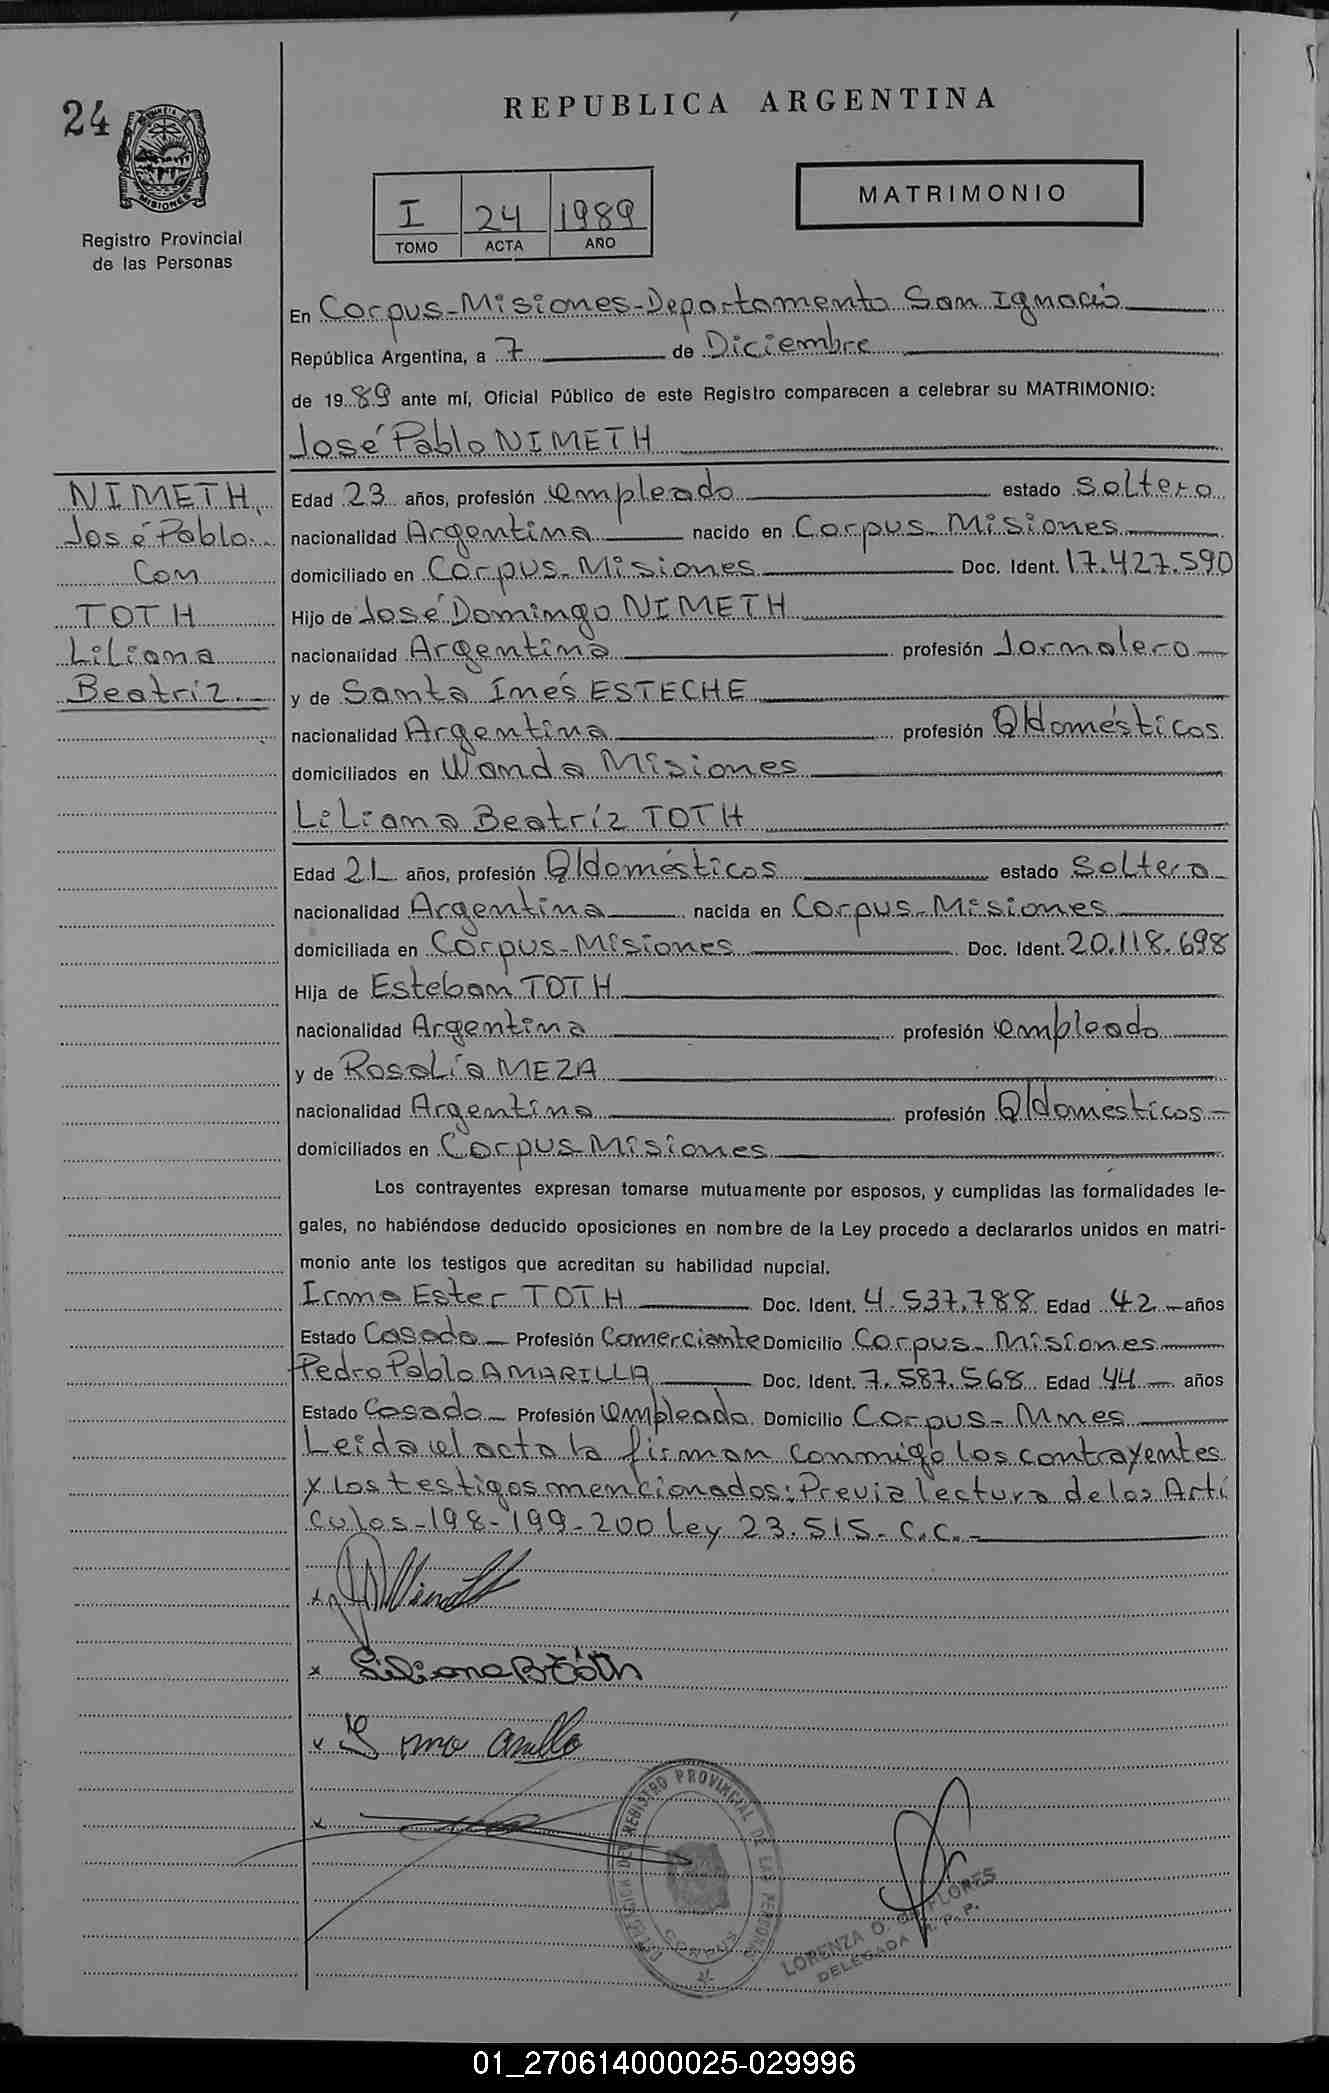 24
REPUBLICA ARGENTINA
MISIONES
Registro Provincial
de las Personas
I 24 1989
TOMO ACTA AÑO
MATRIMONIO
En Corpus-Misiones-Departamento San Ignacio
República Argentina, a 7 de Diciembre
de 1989 ante mí, Oficial Público de este Registro comparecen a celebrar su MATRIMONIO:
José Pablo NIMETH
NIMETH,
José Pablo
Con
TOTH
Liliana
Beatríz
Edad 23 años, profesión empleado estado Soltero
nacionalidad Argentina nacido en Corpus-Misiones
domiciliado en Corpus-Misiones Doc. Ident. 17.427.590
Hijo de José Domingo NIMETH
nacionalidad Argentina profesión Jornalero
y de Santa Inés ESTECHE
nacionalidad Argentina profesión Q/domésticos
domiciliados en Wanda Misiones
Liliana Beatríz TOTH
Edad 21 años, profesión Q/domésticos estado Soltera
nacionalidad Argentina nacida en Corpus-Misiones
domiciliada en Corpus-Misiones Doc. Ident. 20.118.698
Hija de Esteban TOTH
nacionalidad Argentina profesión empleado
y de Rosalía MEZA
nacionalidad Argentina profesión Q/domésticos-
domiciliados en Corpus-Misiones
Los contrayentes expresan tomarse mutuamente por esposos, y cumplidas las formalidades le-
gales, no habiéndose deducido oposiciones en nombre de la Ley procedo a declararlos unidos en matri-
monio ante los testigos que acreditan su habilidad nupcial.
Irma Ester TOTH Doc. Ident. 4.537.788 Edad 42 años
Estado Casada Profesión Comerciante Domicilio Corpus-Misiones
Pedro Pablo AMARILLA Doc. Ident. 7.587.568 Edad 44 años
Estado Casado Profesión empleado Domicilio Corpus-Mnes
Leída el acta la firman conmigo los contrayentes
y los testigos mencionados: Previa lectura de los Artí
culos-198-199-200 Ley 23.515-C.C.-
Liliana B Tóth
REGISTRO PROVINCIAL DE LAS PERSONAS
CORPUS
LORENZA O. DE FLORES
DELEGADA R. P. P.
01_270614000025-029996